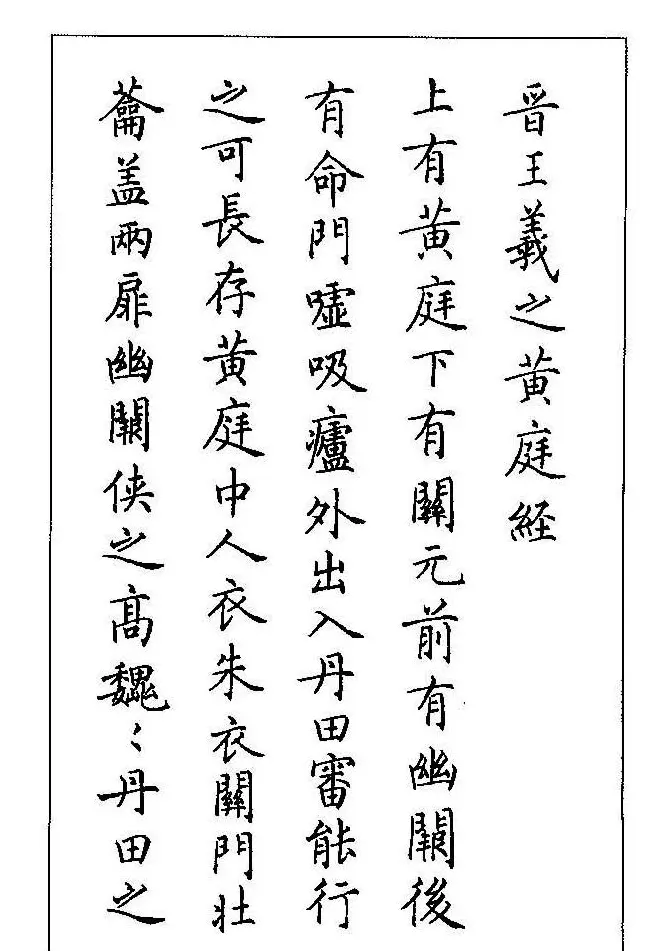 晉王羲之黄庭経
上有黄庭下有關元前有幽闕後
有命門嘘吸廬外出入丹田審能行
之可長存黄庭中人衣朱衣關門壮
蘥盖兩扉幽闕侠之髙魏〻丹田之